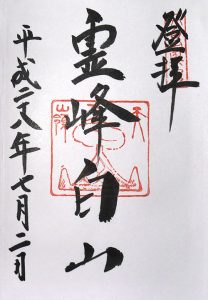 登拝
霊峰白山
平成二八年七月二日